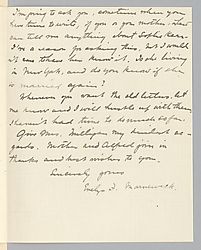 I'm going to ask you, sometime when you
have time to write, if you or your mother
can tell me anything about Sophie
I've a reason for asking this, but I would
Is she living
in New York, and do you know if she
is married again?
Whenever you want the old letters, let
me know and I will hustle up with them
I haven't had time to do much so far.
Give Mrs. Milligan my kindest re-
gards. Mother and Alfred join in
thanks and best wishes to you.
Sincerely yours
Evelyn